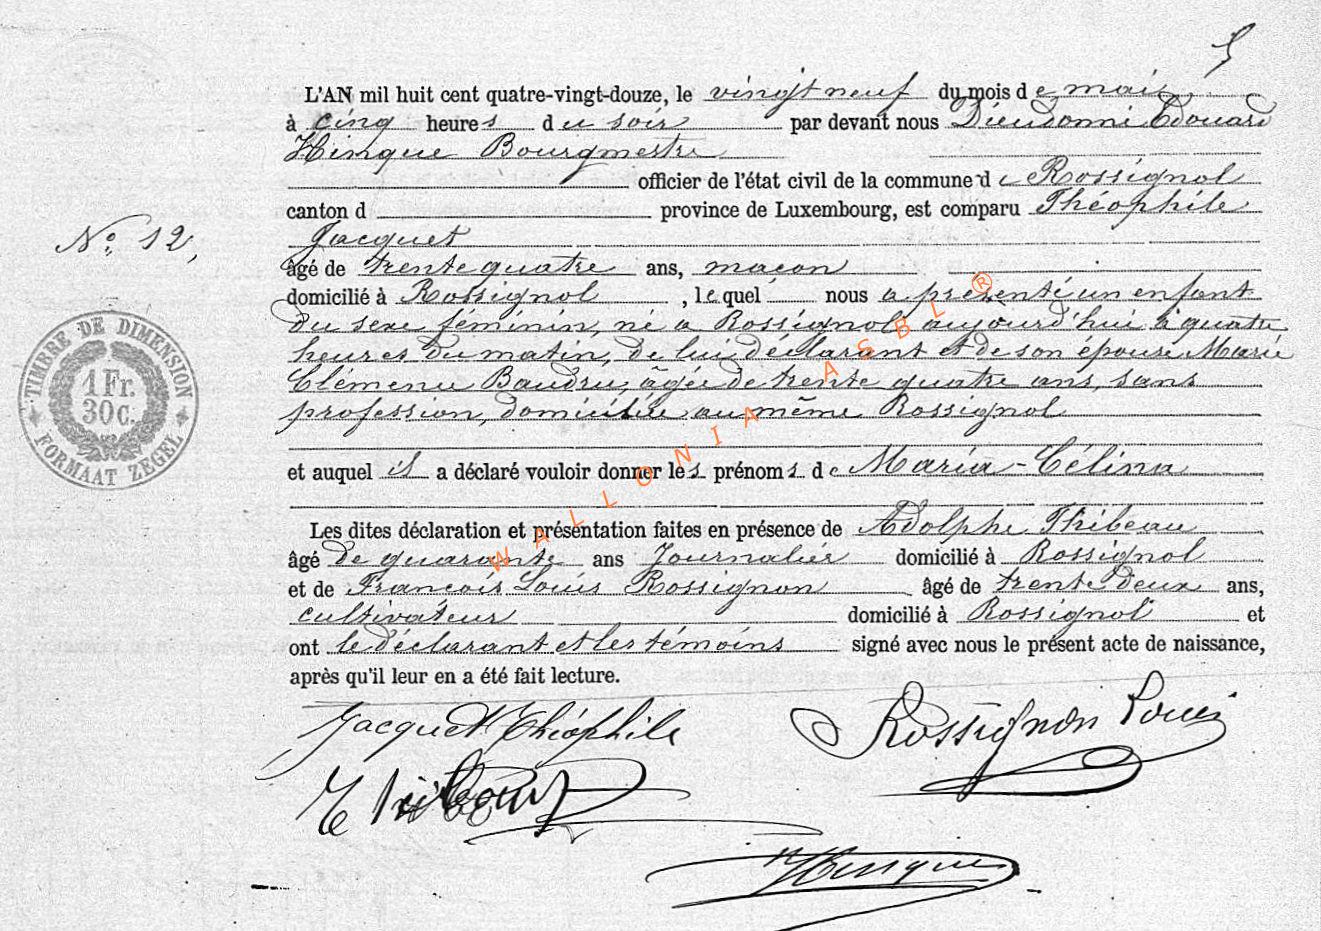 5
L'AN mil huit cent quatre-vingt-douze, le vingt neuf du mois de mai
à cinq heures du soir par devant nous Dieudonné Edouard
Hinque Bourgmestre
officier de l'état civil de la commune de Rossignol
canton d province de Luxembourg, est comparu Théophile
Jacquet
N° 12,
âgé de trente quatre ans, maçon
domicilié à Rossignol, lequel nous a présenté un enfant
du sexe féminin, né a Rossignol aujourd'hui à quatre
heures du matin, de lui déclarant et de son épouse Marie
Clémence Baudru, âgée de trente quatre ans, sans
profession, domiciliée au même Rossignol
TIMBRE DE DIMENSION
1 Fr.
30c.
FORMAAT ZEGEL
et auquel il a déclaré vouloir donner les prénoms de Maria-Célina
Les dites déclaration et présentation faites en présence de Adolphe Thibeau
âgé de quarante ans Journalier domicilié à Rossignol
et de François Louis Rossignon âgé de trente deux ans,
cultivateur domicilié à Rossignol et
ont le déclarant et les témoins signé avec nous le présent acte de naissance,
après qu'il leur en a été fait lecture.
Jacquet Théophile Rossignon Louis
Hinque
WALLONIA ASBL ®